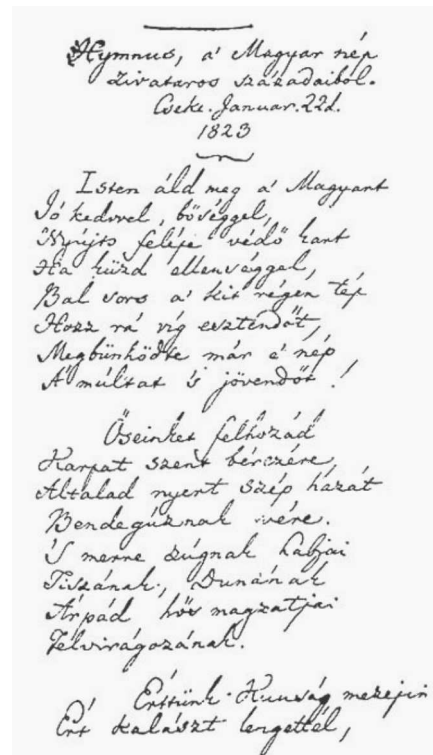 Hymnus, a' Magyar nép
zivataros századaiból.
Cseke. Januar. 22d.
1823
Isten áld meg a' Magyart
Jó kedvvel, bőséggel,
Nyújts feléje védő kart
Ha küzd ellenséggel,
Bal sors a' kit régen tép
Hozz rá víg esztendőt,
Megbünhödte már e' nép
A' múltat 's jövendőt!
Őseinket felhozád
Karpat szent bérczére
Általad nyert szép hazát
Bendegúznak vére.
'S merre zúgnak habjai
Tiszának, Dunának
Árpád hős magzatjai
Felvirágozának.
Érttünk Kunság mezejin
Ért kalászt lengettél,